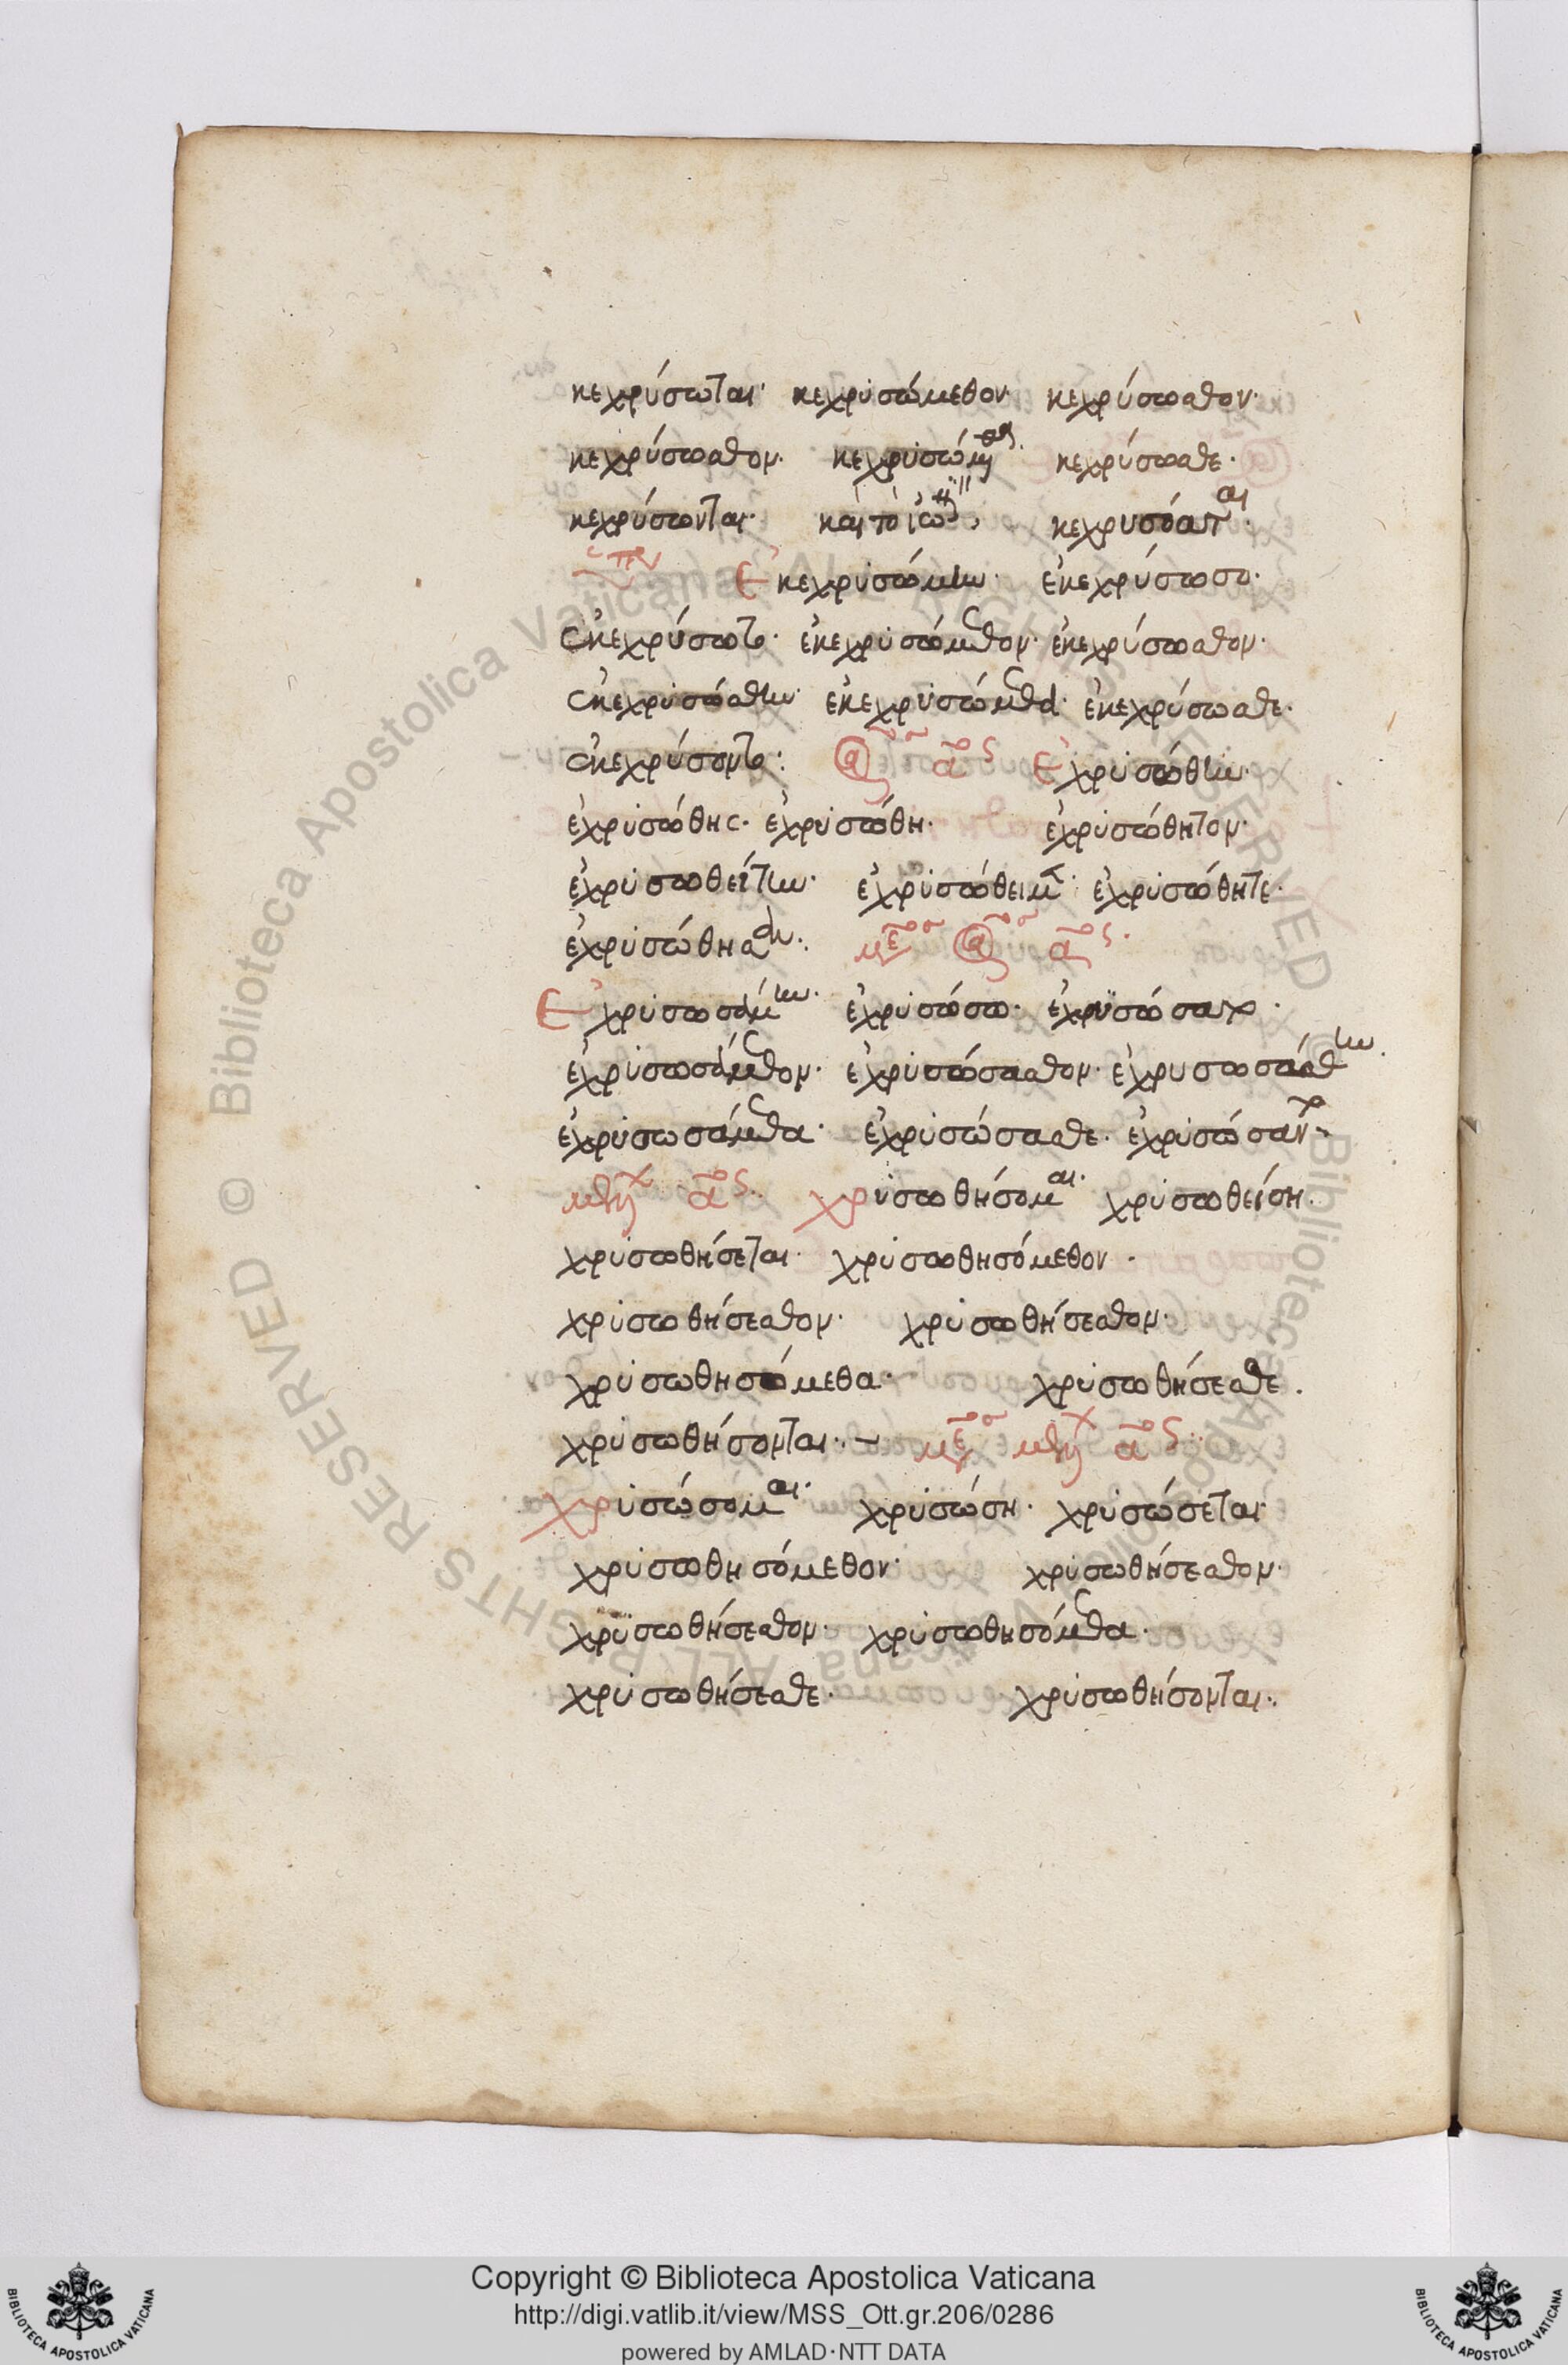 κεχρύσωται· κεχρυσώμεθον· κεχρύσωσθον·
κεχρύσωσθον· κεχρυσώμεθα· κεχρύσωσθε·
κεχρύσονται· καὶ τὸ κεχρυσόαται·
Ἐκεχρυσώμην· ἐκεχρύσωσο·
ἐκεχρύσωτο· ἐκεχρυσώμεθον· ἐκεχρύσωσθον·
ἐκεχρυσώσθην· ἐκεχρυσώμεθα· ἐκεχρύσωσθε·
ἐκεχρύσοντο: Ἐχρυσώθην·
ἐχρυσώθης· ἐχρυσώθη· ἐχρυσώθητον·
ἐχρυσωθείτην· ἐχρυσώθειμεν· ἐχρυσώθητε·
ἐχρυσώθησαν:
Ἐχρυσωσάμην· ἐχρυσώσω· ἐχρυσώσατο·
ἐχρυσωσάμεθον· ἐχρυσώσασθον· ἐχρυσωσάσθην·
ἐχρυσωσάμεθα· ἐχρυσώσασθε· ἐχρυσώσαντο·
χρυσωθήσομαι· χρυσωθείση·
χρυσωθήσεται· χρυσωθησόμεθον·
χρυσωθήσεσθον· χρυσωθήσεσθον·
χρυσωθησόμεθα· χρυσωθήσεσθε·
χρυσωθήσονται·
χρυσώσομαι· χρυσώση· χρυσώσεται
χρυσωθησόμεθον· χρυσωθήσεσθον·
χρυσωθήσεσθον· χρυσωθησόμεθα·
χρυσωθήσεσθε· χρυσωθήσονται·
© Biblioteca Apostolica Vaticana ALL RIGHTS RESERVED
Copyright © Biblioteca Apostolica Vaticana
http://digi.vatlib.it/view/MSS_Ott.gr.206/0286
powered by AMLAD·NTT DATA
BIBLIOTECA APOSTOLICA VATICANA
BIBLIOTECA APOSTOLICA VATICANA